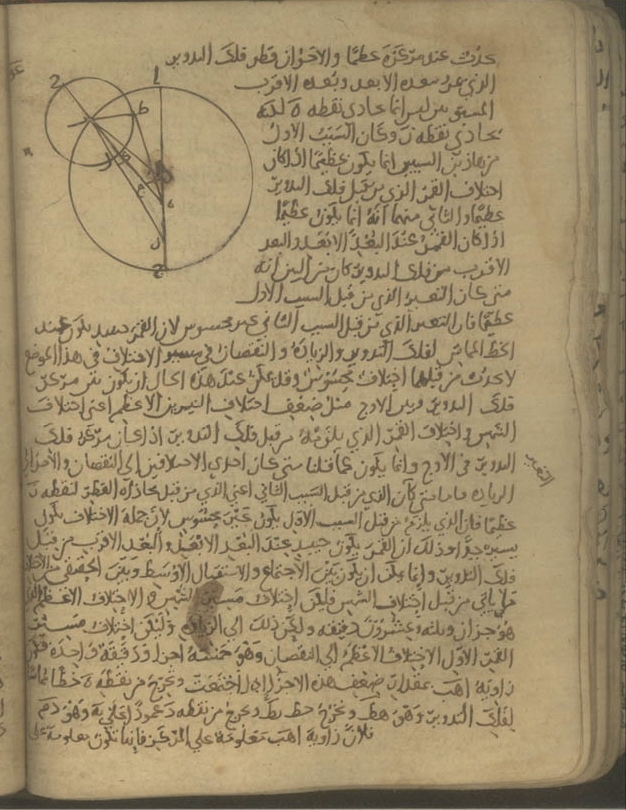 يحدث عند مركزه عظيما والاخر ان قطر فلك التدوير
الذي عليه بعده الابعد وبعده الاقرب
المستوى ليس انما يحاذي نقطه ه لكنه
يحاذي نقطه ن وكان السبب الاول
من هاذين السببين انما يكون عظيما اذا كان
اختلاف القمر الذي من قبل فلك التدوير
عظيما والثاني منهما انه انما يكون عظيما
اذا كان القمر عند البعد الابعد والبعد
الاقرب من فلك التدوير كان من البين انه
متى كان التغير الذي من قبل السبب الاول
عظيما فان التغير الذي من قبل السبب الثاني غير محسوس لان القمر يكون عند
الخط المماس لفلك التدوير والزيادة والنقصان في الاختلاف في هذا الموضع
لا يحدث من قبلها اختلاف محسوس وقد يمكن عند هذه الحال ان يكون بين مركز
فلك التدوير وبين الاوج مثل ضعف اختلاف النيرين الاعظم اعني اختلاف
الشمس واختلاف القمر الذي يلزمه من قبل فلك التدوير اذا كان مركز فلك
التدوير في الاوج وانما يكون كما قلنا متى كان احدى الاختلافين الى النقصان والاخر الى
التغير
الزيادة فاما متى كان الذي من قبل السبب الثاني اعني الذي من قبل محاذاة القطر لنقطه ن
عظيما فان الذي يلزم من قبل السبب الاول يكون غير محسوس لان جملة الاختلاف يكون
يسير جدا وذلك ان القمر يكون حينئذ عند البعد الابعد والبعد الاقرب من قبل
فلك التدوير وانما يمكن ان يكون بين الاجتماع والاستقبال الاوسط وبين الحقيقي
ما ياتي من قبل اختلاف الشمس فليكن اختلاف مسير الشمس الاختلاف الاعظم
هو جزان وثلثه وعشرون دقيقه وليكن ذلك الى الزيادة وليكن اختلاف مسير
القمر الاول الاختلاف الاعظم الى النقصان وهو خمسة اجزا ودقيقة واحده فتكون
زاوية اهب بمقدار ضعف هذه الاجزا اذا اجتمعت ونخرج من نقطه ه خطا مماسا
لفلك التدوير وهو هط ونخرج خط بط ونخرج من نقطه د عمودا على به وهو دم
فلان زاوية اهب معلومة على المركز فانها تكون معلومة على